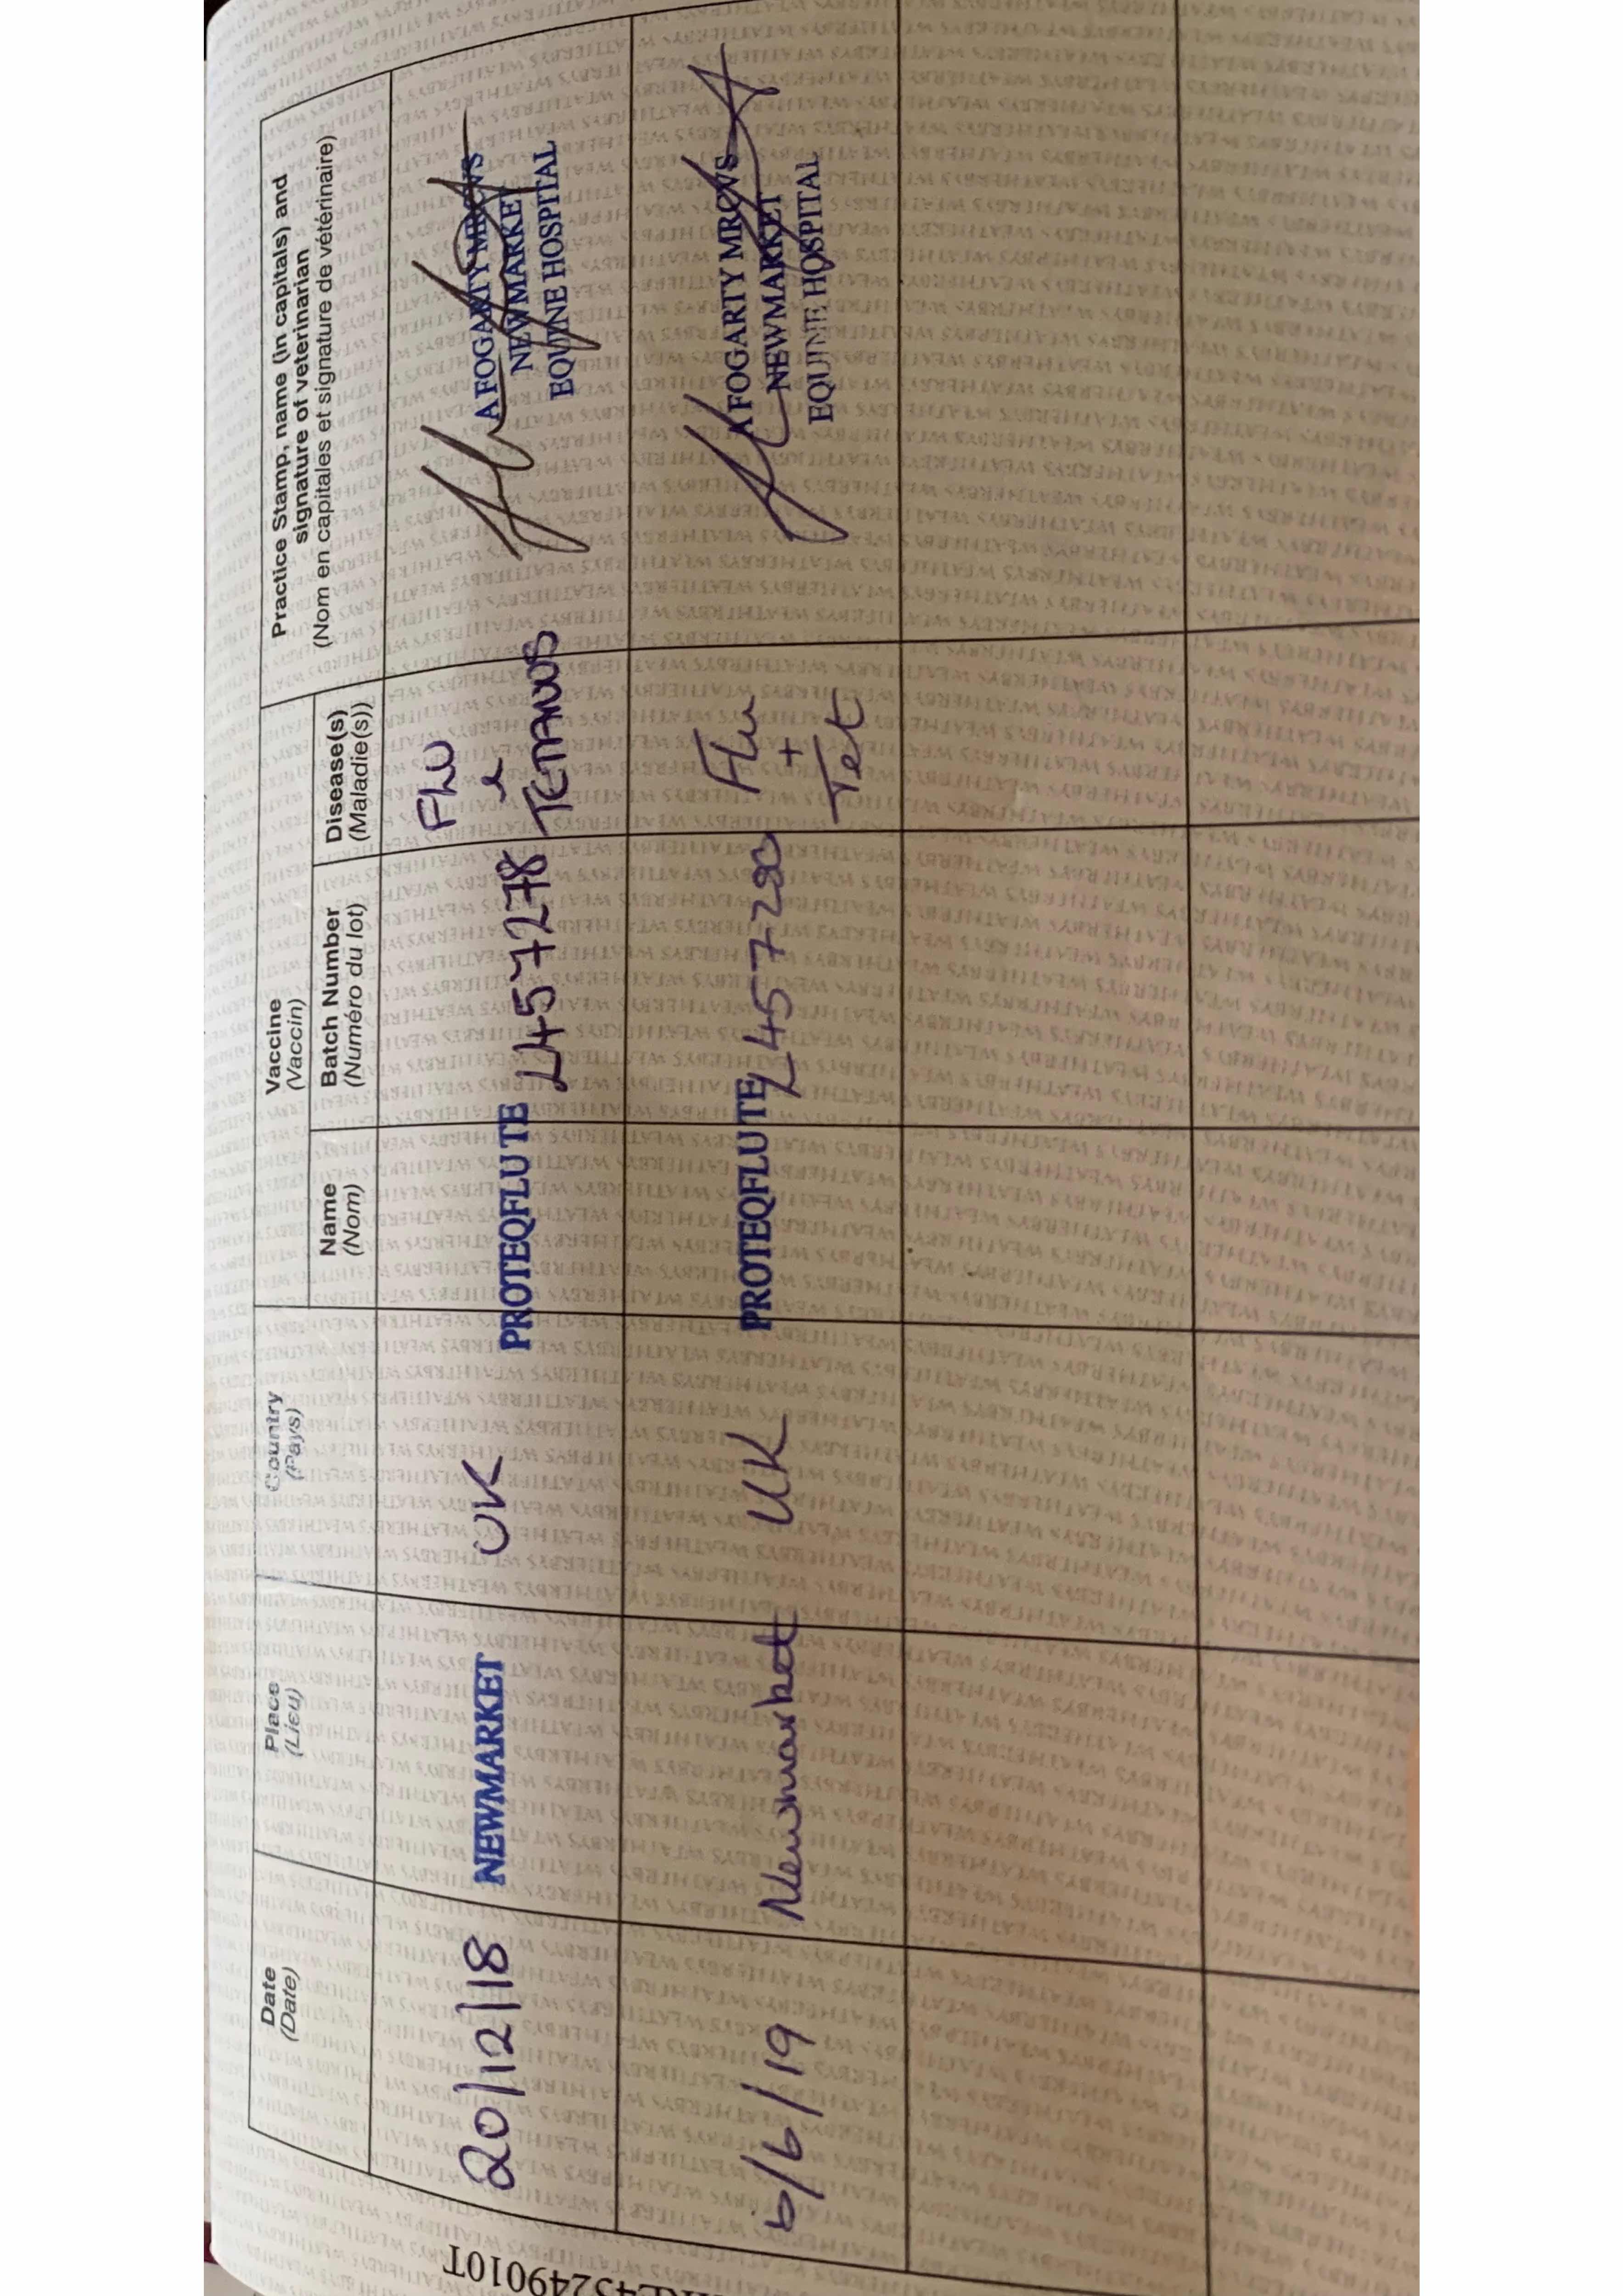 Date
(Date)
Place
(Lieu)
Country
(Pays)
Vaccine
(Vaccin)
Name
(Nom)
Batch Number
(Numéro du lot)
Disease(s)
(Maladie(s))
Practice Stamp, name (in capitals) and
signature of veterinarian
(Nom en capitales et signature de vétérinaire)
20/12/18
NEWMARKET
UK
PROTEQFLU TE
L457278
Flu
&
TETANUS
A FOGARTY MRCVS
NEWMARKET
EQUINE HOSPITAL
6/6/19
Newmarket
UK
PROTEQFLU TE
L457280
Flu
+
Tet
A FOGARTY MRCVS
NEWMARKET
EQUINE HOSPITAL